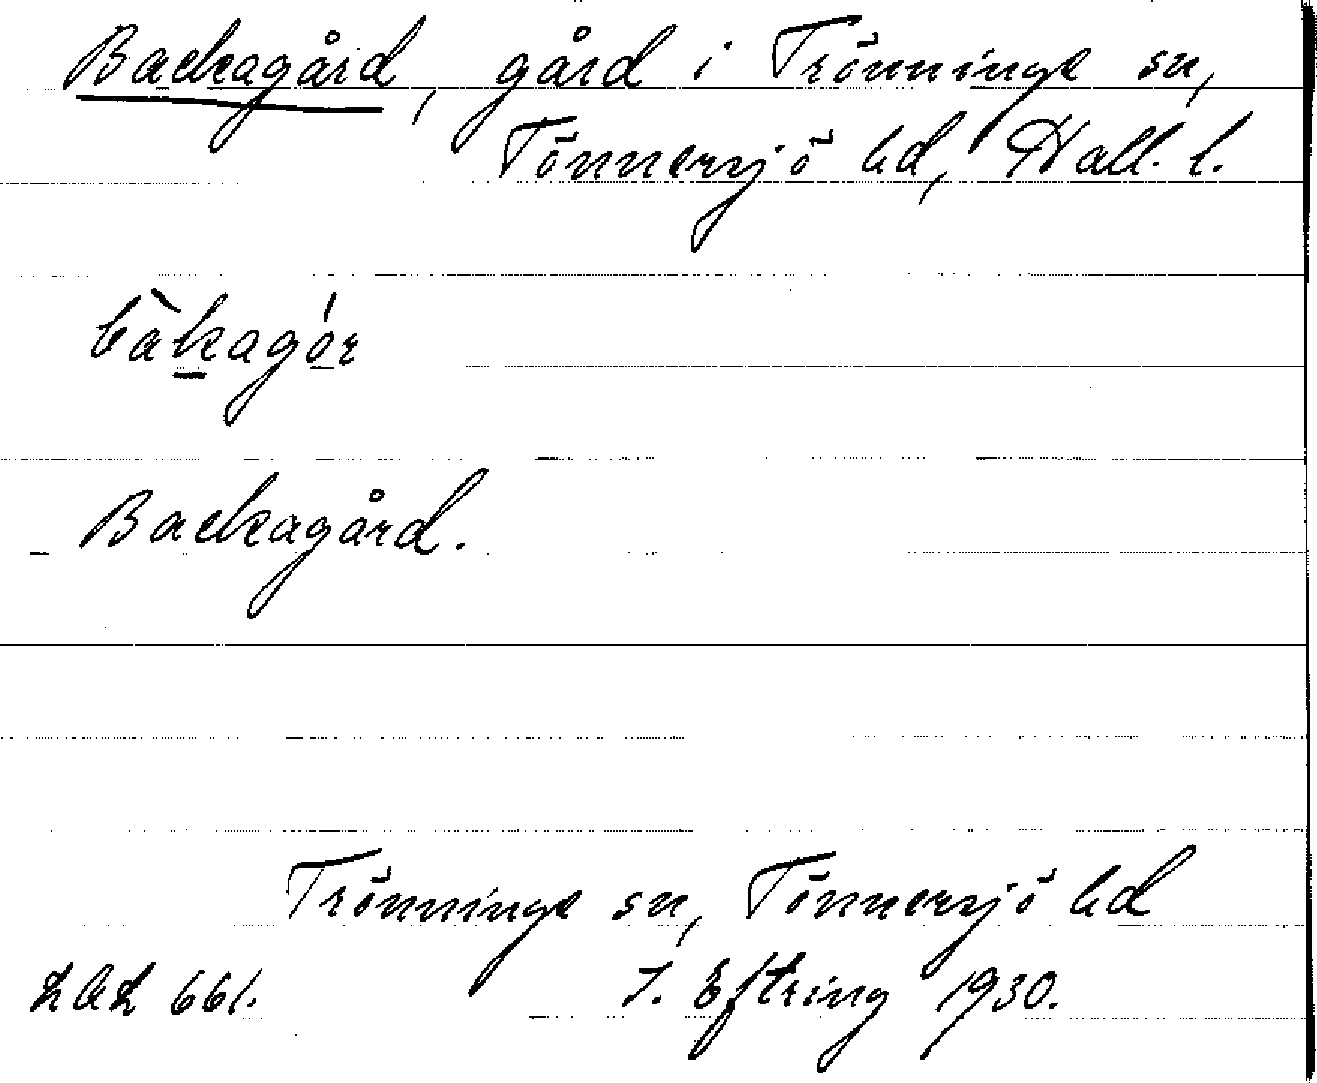 Backagård, gård i Trönninge sn,
Tönnersjö hd, Hall. l.
bàkagór
Backagård.
Trönninge sn, Tönnersjö hd
LAL 661. J. Eftring 1930.